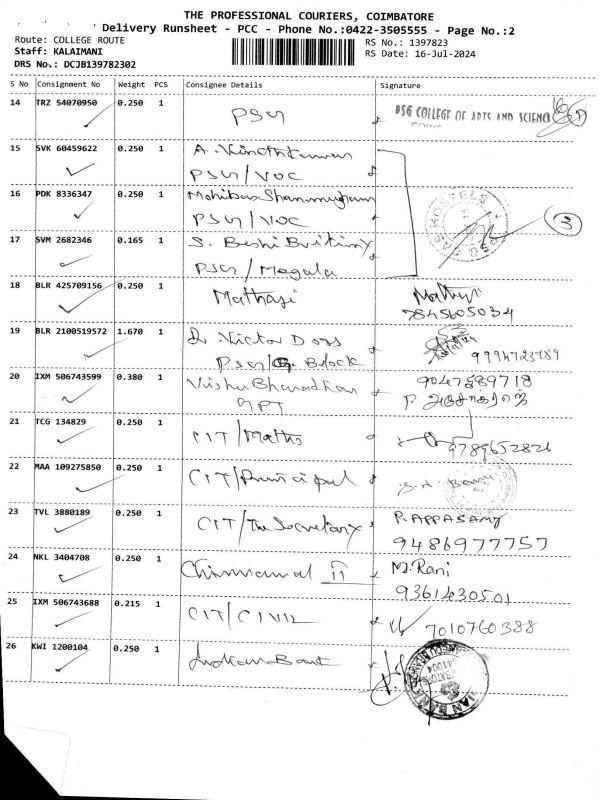 THE PROFESSIONAL COURIERS, COIMBATORE
Delivery Runsheet - PCC - Phone No.:0422-3505555 - Page No.:2
Route: COLLEGE ROUTE
RS No.: 1397823
Staff: KALAIMANI
RS Date: 16-Jul-2024
DRS No.: DCJB139782302
S No Consignment No Weight PCS Consignee Details Signature
14 TRZ 54070950 0.250 1 PSG PSG COLLEGE OF ARTS AND SCIENCE
15 SVK 60459622 0.250 1 A. Vinothkumar
PSG/VOC
16 PDK 8336347 0.250 1 Mohibar Shanmugham
PSG/VOC
3
17 SVM 2682346 0.165 1 S. Beshi Britimy
PSG/Megala
18 BLR 425709156 0.250 1 Mathagi
7845605034
19 BLR 2100519572 1.670 1 Dr Victor Doss
PSG/ Block 9994723789
20 IXM 506743599 0.380 1 Vishu Bharadhan 9047589718
GPT
21 TCG 134829 0.250 1 CIT/Maths
9789652826
22 MAA 109275850 0.250 1 CIT/Principal
23 TVL 3880189 0.250 1 CIT/The Secretary P. APPASAMY
9486977757
24 NKL 3404708 0.250 1 Chinnamal II M. Rani
9361430501
25 IXM 506743688 0.215 1 CIT/CIVIL 7010760388
26 KWI 1200104 0.250 1 Indian Bank